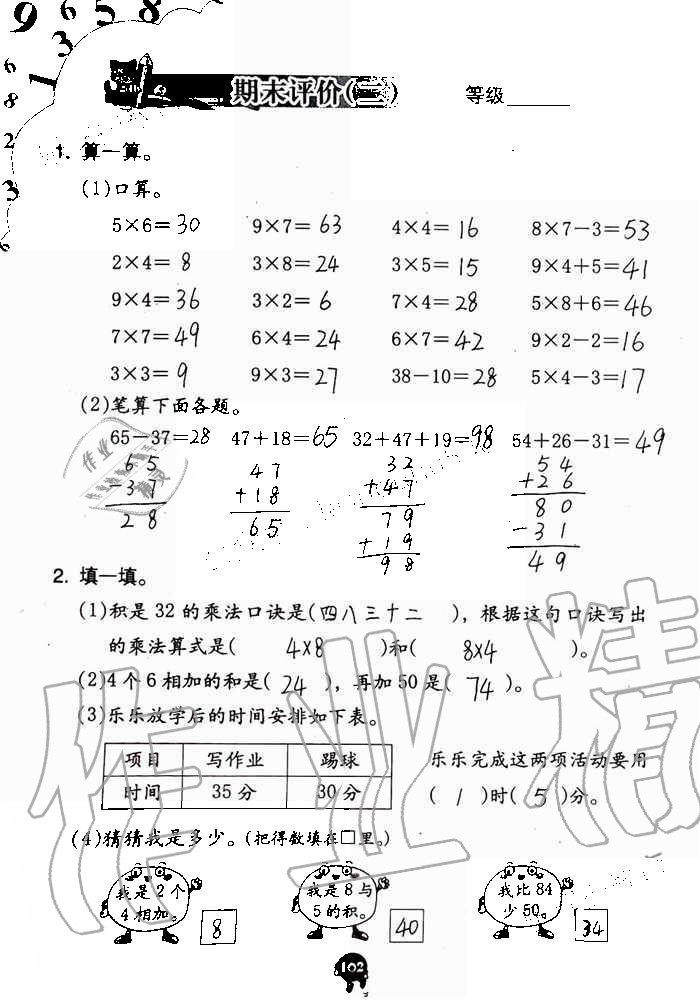 9 6 5 8
1 3 5
6
8
2
3
6
期末评价(二) 等级
1. 算一算。
(1)口算。
5×6=30 9×7=63 4×4=16 8×7-3=53
2×4=8 3×8=24 3×5=15 9×4+5=41
9×4=36 3×2=6 7×4=28 5×8+6=46
7×7=49 6×4=24 6×7=42 9×2-2=16
3×3=9 9×3=27 38-10=28 5×4-3=17
(2)笔算下面各题。
65-37=28 47+18=65 32+47+19=98 54+26-31=49
65 47 32 54
-37 +18 +47 +26
28 65 79 80
+19 -31
98 49
2. 填一填。
(1)积是 32 的乘法口诀是(四八三十二 ),根据这句口诀写出
的乘法算式是( 4×8 )和( 8×4 )。
(2)4 个 6 相加的和是( 24 ),再加 50 是( 74 )。
(3)乐乐放学后的时间安排如下表。
项目 写作业 踢球 乐乐完成这两项活动要用
时间 35 分 30 分 ( 1 )时( 5 )分。
(4)猜猜我是多少。(把得数填在□里。)
我是 2 个 我是 8 与 我比 84
4 相加。 8 5 的积。 40 少 50。 34
102
作业精